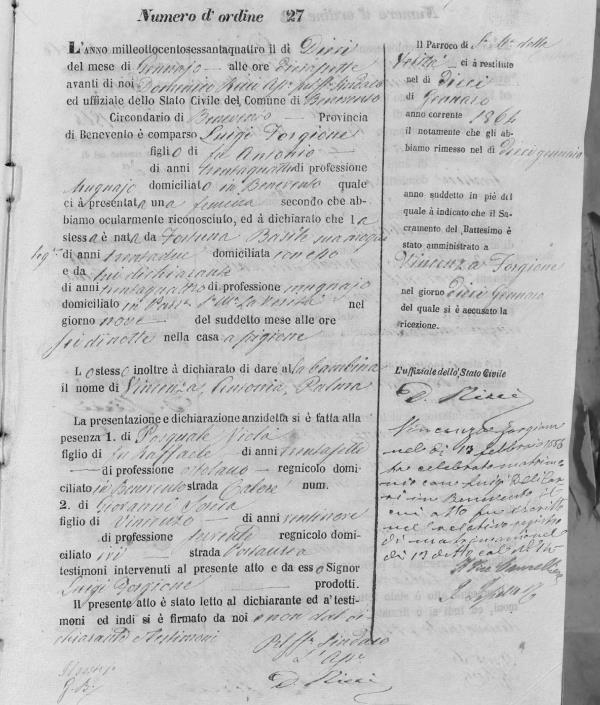 Numero d'ordine 27
L'ANNO milleottocentosessantaquattro il dì Dieci
del mese di Gennajo alle ore diciasette
avanti di noi Domenico Ricci
ed uffiziale dello Stato Civile del Comune di Benevento
Circondario di Benevento Provincia
di Benevento è comparso Luigi Forgione
figlio di fu Antonio
di anni trentaquattro di professione
Mugnajo domiciliato in Benevento quale
ci à presentata una femina secondo che ab-
biamo ocularmente riconosciuto, ed à dichiarato che la
stessa è nata da Fortuna Basile sua moglie
di anni trentadue domiciliata con esso
e da lui dichiarante
di anni trentaquattro di professione mugnajo
domiciliato in Parr. S. Ma. La Verità nel
giorno nove del suddetto mese alle ore
sei di notte nella casa a pigione
Lo stesso inoltre à dichiarato di dare alla bambina
il nome di Vincenza, Antonia, Palma
La presentazione e dichiarazione anzidetta si è fatta alla
pesenza 1. di Pasquale
figlio di fu Raffaele di anni trentasette
di professione ortolano regnicolo domi-
ciliato in Benevento strada Calore num.
2. di Giovanni
figlio di Vincenzo di anni ventinove
di professione regnicolo domi-
ciliato ivi strada
testimoni intervenuti al presente atto e da esso Signor
Luigi Forgione prodotti.
Il presente atto è stato letto al dichiarante ed a' testi-
moni ed indi si è firmato da noi e non dal di
chiarante e testimoni
Pel Sindaco
D. Ricci
Il Parroco di S. Ma. della
Verità ci à restituto
nel dì dieci
di Gennaro
anno corrente 1864
il notamente che gli ab-
biamo rimesso nel dì dieci gennaio
anno suddetto in piè del
quale à indicato che il Sa-
cramento del Battesimo è
stato amministrato a
Vincenza Forgione
nel giorno dieci Gennaro
del quale si è accusato la
ricezione.
L'uffiziale dello Stato Civile
D. Ricci
Vincenza Forgione
nel dì 13 febbraio 1886
celebrato matrimo-
nio con Luigi
in Benevento
nel relativo registro
di matrimonio
di 13 detto